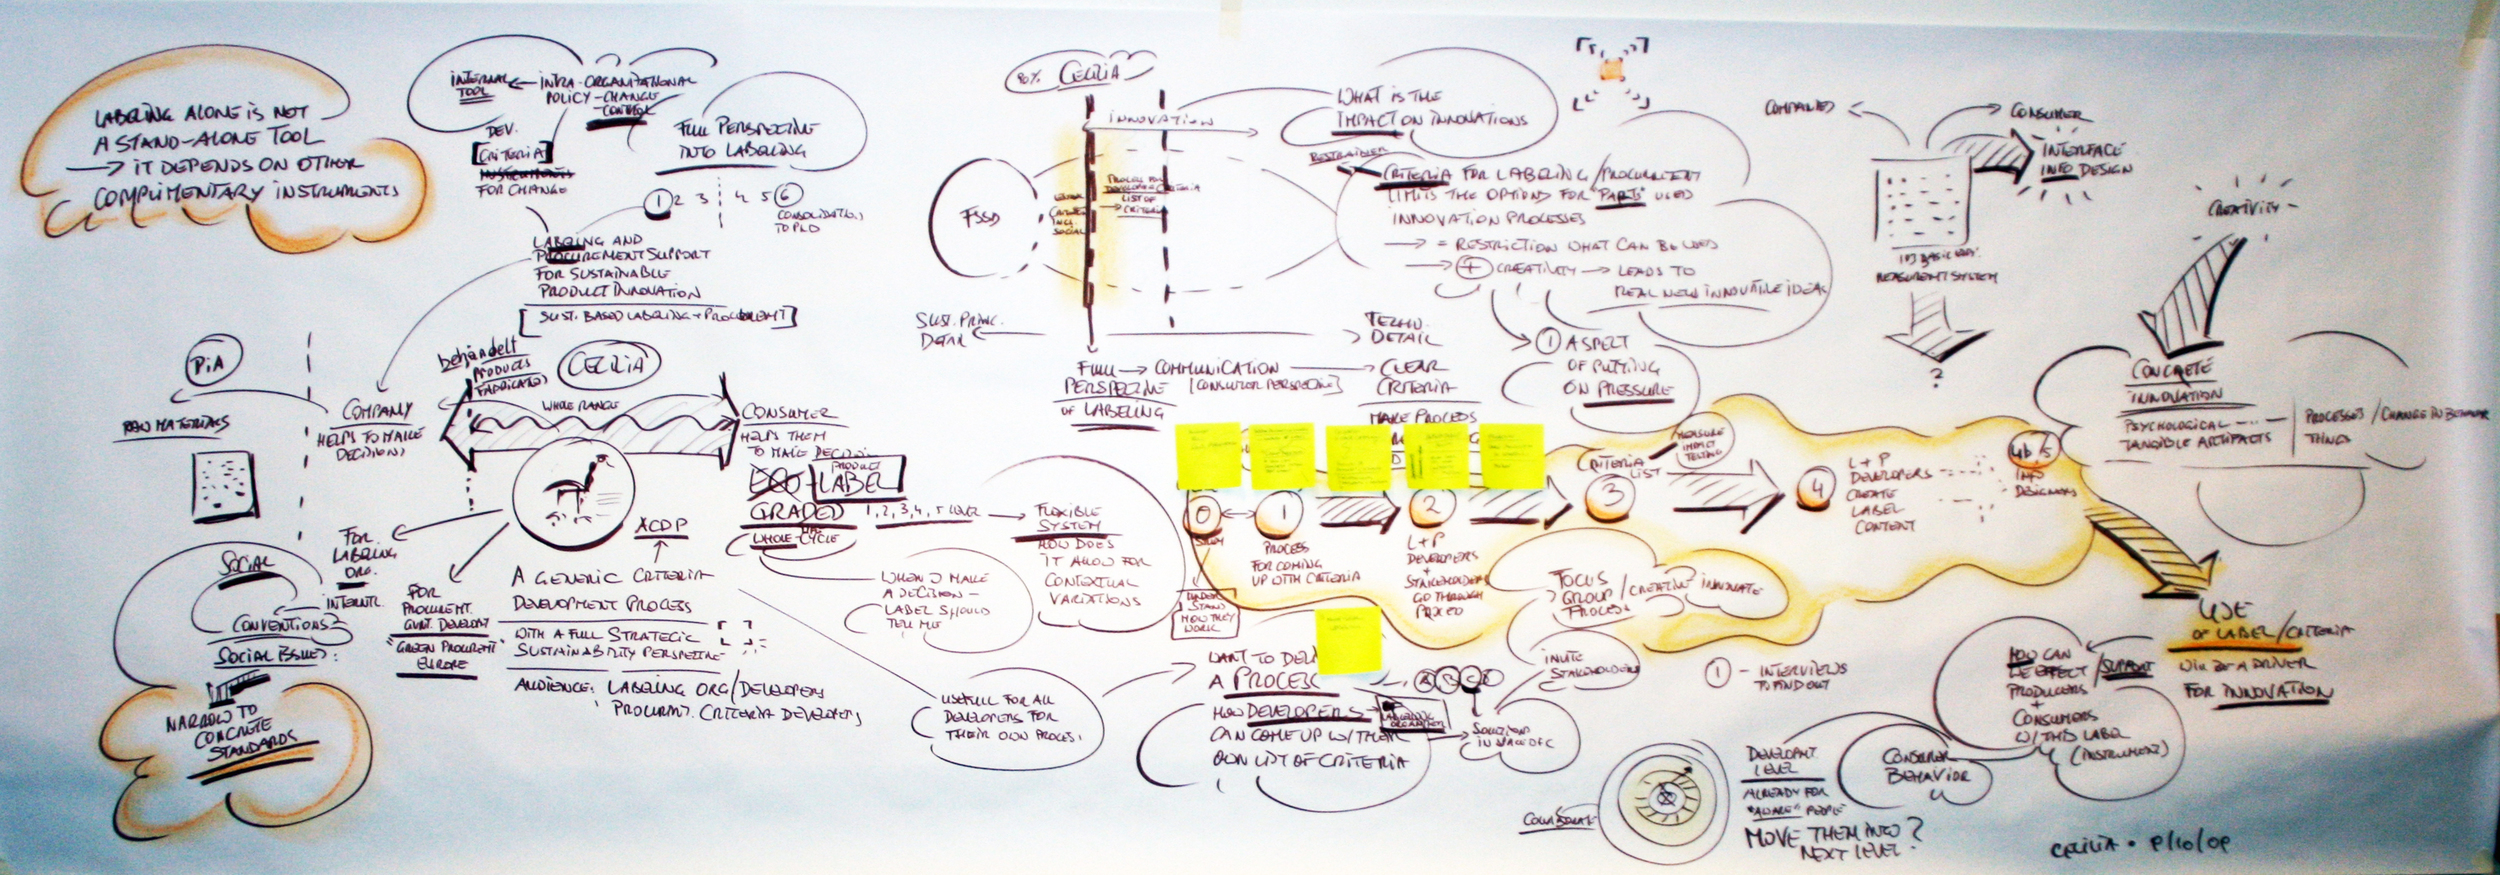 LABELING ALONE IS NOT
A STAND-ALONE TOOL
→ IT DEPENDS ON OTHER
COMPLIMENTARY INSTRUMENTS
INTERNAL
TOOL
INTRA-ORGANIZATIONAL
POLICY-CHANGE
CONTROL
DEV.
[CRITERIA]
INSTRUMENTS
FOR CHANGE
FULL PERSPECTIVE
INTO LABELING
1 2 3 4 5 6
TO PLD
LABELING AND
PROCUREMENT SUPPORT
FOR SUSTAINABLE
PRODUCT INNOVATION
[SUST. BASED LABELING + PROCUREMENT]
PiA
RAW MATERIALS
COMPANY
HELPS TO MAKE
DECISIONS
behandelt
PRODUCTS
CECILIA
WHOLE RANGE
CONSUMER
HELPS THEM
TO MAKE DECISION
ECO-
PRODUCT
LABEL
GRADED
1, 2, 3, 4, 5 LEVEL
WHOLE-CYCLE
FLEXIBLE
SYSTEM
HOW DOES
IT ALLOW FOR
CONTEXTUAL
VARIATIONS
WHEN I MAKE
A DECISION -
LABEL SHOULD
TELL ME
FOR
LABELING
ORG.
INTERNTL.
SOCIAL
CONVENTIONS
SOCIAL ISSUES:
NARROW TO
CONCRETE
STANDARDS
FOR
PROCURMENT.
"GREEN PROCURMENT
EUROPE
A GENERIC CRITERIA
DEVELOPMENT PROCESS
WITH A FULL STRATEGIC
SUSTAINABILITY PERSPECTIVE
AUDIENCE: LABELING ORG/DEVELOPERS
PROCURMT. CRITERIA DEVELOPERS
USEFULL FOR ALL
DEVELOPERS FOR
THEIR OWN PROCESS
80% CECILIA
INNOVATION
FSSD
SOCIAL
LIST OF
CRITERIA
SUST. PRINC.
DETAIL
TECHN.
DETAIL
FULL → COMMUNICATION → CLEAR
PERSPECTIVE [CONSUMER PERSPECTIVE] CRITERIA
OF LABELING
WHAT IS THE
IMPACT ON INNOVATIONS
RESTRAINLER
CRITERIA FOR LABELING/PROCUREMENT
LIMITS THE OPTIONS FOR "PARTS" USED
INNOVATION PROCESSES
→ = RESTRICTION WHAT CAN BE USED
→ + CREATIVITY → LEADS TO
REAL NEW INNOVATIVE IDEAS
1 ASPECT
OF PUTTING
ON PRESSURE
MAKE PROCESS
0
1
PROCESS
FOR COMING
UP WITH CRITERIA
UNDER
STAND
HOW THEY
WORK
2
L+P
DEVELOPERS
+
STAKEHOLDERS
GO THROUGH
PROCESS
CRITERIA
LIST
3
MEASURE
IMPACT
TESTING
4
L+P
DEVELOPERS
CREATE
LABEL
CONTENT
4b/5
INFO
DESIGNERS
FOCUS
GROUP / CREATIVE INNOVATE
PROCESS
INVITE
STAKEHOLDERS
A PROCESS
HOW DEVELOPERS
CAN COME UP W/ THEIR
OWN LIST OF CRITERIA
1 - INTERVIEWS
TO FIND OUT
COMPANIES
CONSUMER
INTERFACE
INFO DESIGN
MEASURMENT SYSTEM
?
CREATIVITY
CONCRETE
INNOVATION
PSYCHOLOGICAL
TANGIBLE ARTIFACTS
PROCESSES/CHANGE IN BEHAVIOR
THINGS
USE
OF LABEL/CRITERIA
WILL BE A DRIVER
FOR INNOVATION
HOW CAN
WE EFFECT/SUPPORT
PRODUCERS
+
CONSUMERS
W/ THIS LABEL
(INSTRUMENT)
CONSUMER
BEHAVIOR
COLLABORATE
DEVELOPMT
LEVEL
ALREADY FOR
"AWARE" PEOPLE
MOVE THEM INTO ?
NEXT LEVEL?